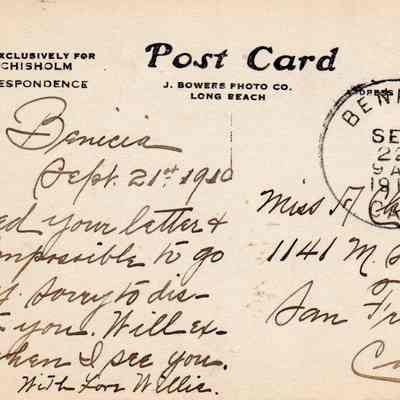 EXCLUSIVELY FOR
CHISHOLM
ESPONDENCE
Post Card
J. BOWERS PHOTO CO.
LONG BEACH
BENI
SE
22
9 A
191
CA
Benicia
Sept. 21st 1910
ed your letter &
mpossible to go
sorry to dis-
you. Will ex-
hen I see you.
With Love Willis.
Miss
1141 M
San Fr
Ca